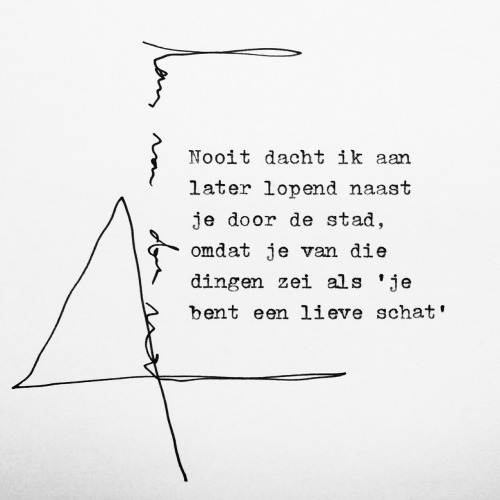 Nooit dacht ik aan
later lopend naast
je door de stad,
omdat je van die
dingen zei als 'je
bent een lieve schat'